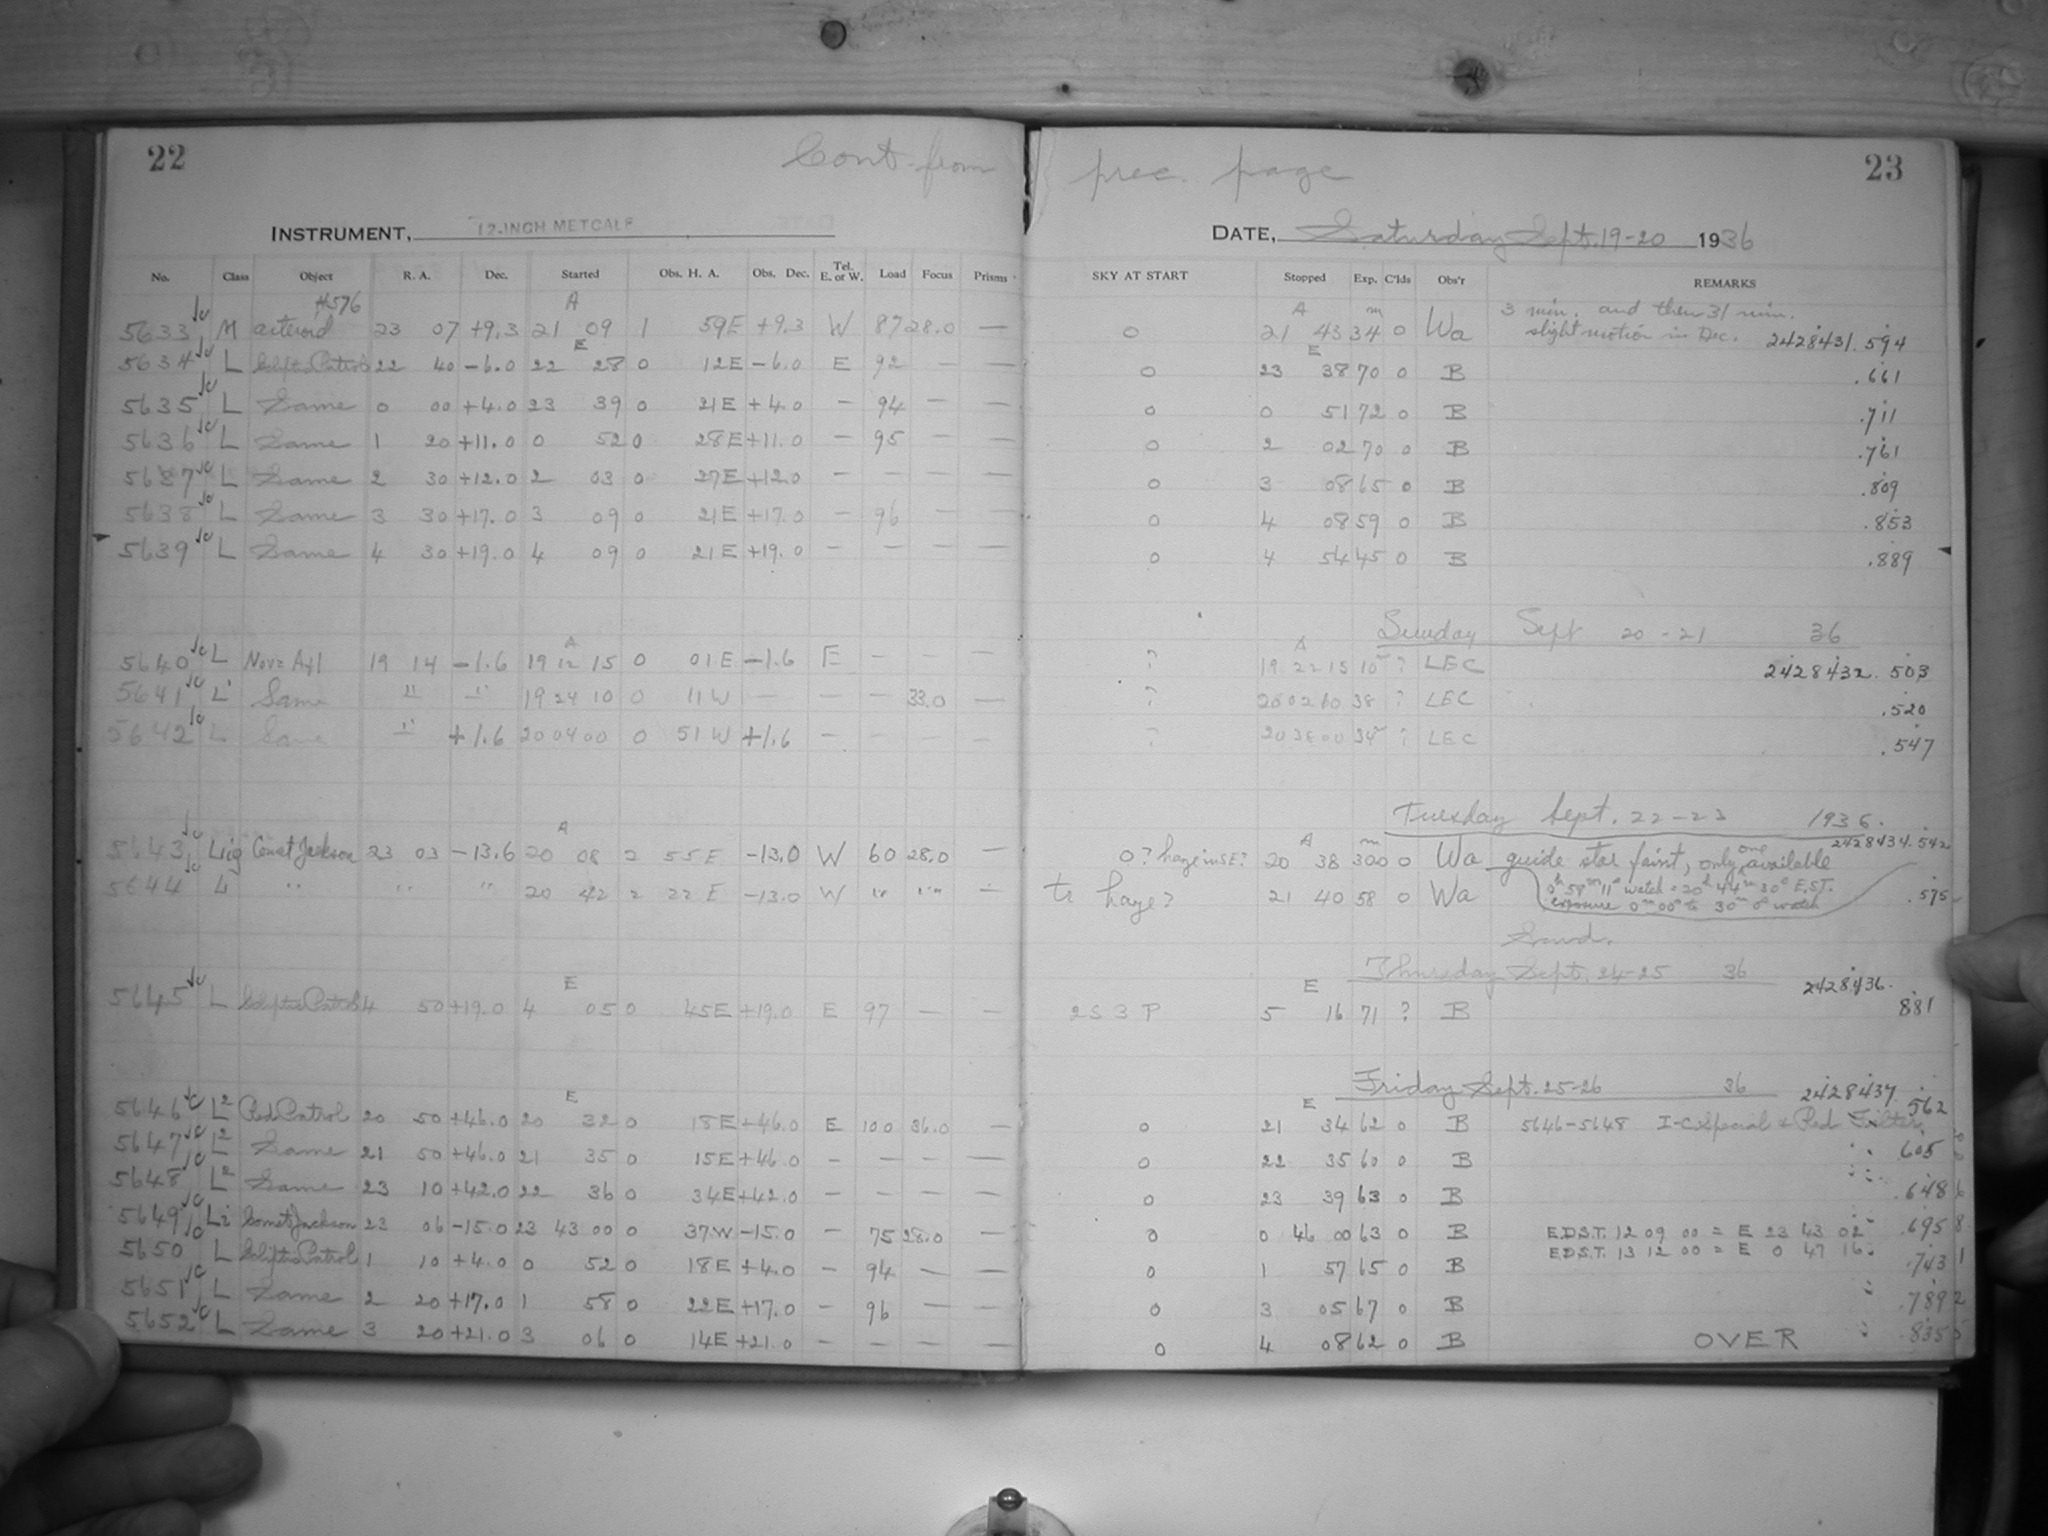 22
Cont from
INSTRUMENT, 12-INCH METCALF
No. Class Object R. A. Dec. Started Obs. H. A. Obs. Dec. Tel. E. or W. Load Focus Prisms
#576 A
5633 M asteroid 23 07 +9.3 21 09 1 59E +9.3 W 87 28.0 —
E
5634 L Eclptic Patrol 22 40 -6.0 22 28 0 12E -6.0 E 92 — —
5635 L Same 0 00 +4.0 23 39 0 21E +4.0 — 94 — —
5636 L Same 1 20 +11.0 0 52 0 28E +11.0 — 95 — —
5637 L Same 2 30 +12.0 2 03 0 27E +12.0 — — — —
5638 L Same 3 30 +17.0 3 09 0 21E +17.0 — 96 — —
5639 L Same 4 30 +19.0 4 09 0 21E +19.0 — — — —
A
5640 L Nova Aql 19 14 -1.6 19 12 15 0 01E -1.6 E — — —
5641 L Same " " 19 24 10 0 11W — — — 33.0 —
5642 L Same " +1.6 20 04 00 0 51W +1.6 — — — —
A
5643 Lig Comet Jackson 23 03 -13.6 20 08 2 55E -13.0 W 60 28.0 —
5644 L " " " 20 42 2 22E -13.0 W " " —
E
5645 L Ecliptic Patrol 4 50 +19.0 4 05 0 45E +19.0 E 97 — —
E
5646 L2 Red Patrol 20 50 +46.0 20 32 0 18E +46.0 E 100 36.0 —
5647 L2 Same 21 50 +46.0 21 35 0 15E +46.0 — — — —
5648 L2 Same 23 10 +42.0 22 36 0 34E +42.0 — — — —
5649 Li Comet Jackson 23 06 -15.0 23 43 00 0 37W -15.0 — 75 28.0 —
5650 L Ecliptic Patrol 1 10 +4.0 0 52 0 18E +4.0 — 94 — —
5651 L Same 2 20 +17.0 1 58 0 22E +17.0 — 96 — —
5652 L Same 3 20 +21.0 3 06 0 14E +21.0 — — — —
prec. page
23
DATE, Saturday Sept. 19-20 1936
SKY AT START Stopped Exp. C'lds Obs'r REMARKS
A m 3 min. and then 31 min.
0 21 43 34 0 Wa slight motion in Dec. 2428431.594
E
0 23 38 70 0 B .661
0 0 51 72 0 B .711
0 2 02 70 0 B .761
0 3 08 65 0 B .809
0 4 08 59 0 B .853
0 4 54 45 0 B .889
Sunday Sept 20-21 36
A
? 19 22 15 10 ? LEC 2428432.503
? 20 02 10 38 ? LEC .520
? 20 38 00 34 ? LEC .547
Tuesday Sept. 22-23 1936.
2428434.542
0? haze in SE? A 20 38 m 30 0 0 Wa guide star faint, only one available
to haze? 21 40 58 0 Wa 0h 58m 11s watch = 20h 44m 30s E.S.T. .575
exposure 0m 00s to 30m 0s watch
Thursday Sept. 24-25 36
E 2428436.
2S 3P 5 16 71 ? B 881
Friday Sept. 25-26 36 2428437.
E 562
0 21 34 62 0 B 5646-5648 I-C Special & Red Filter
0 22 35 60 0 B 605
0 23 39 63 0 B .648
0 0 46 00 63 0 B E.D.S.T. 12 09 00 = E 23 43 02 .695
E.D.S.T. 13 12 00 = E 0 47 16
0 1 57 65 0 B .743
0 3 05 67 0 B .789
0 4 08 62 0 B OVER .835